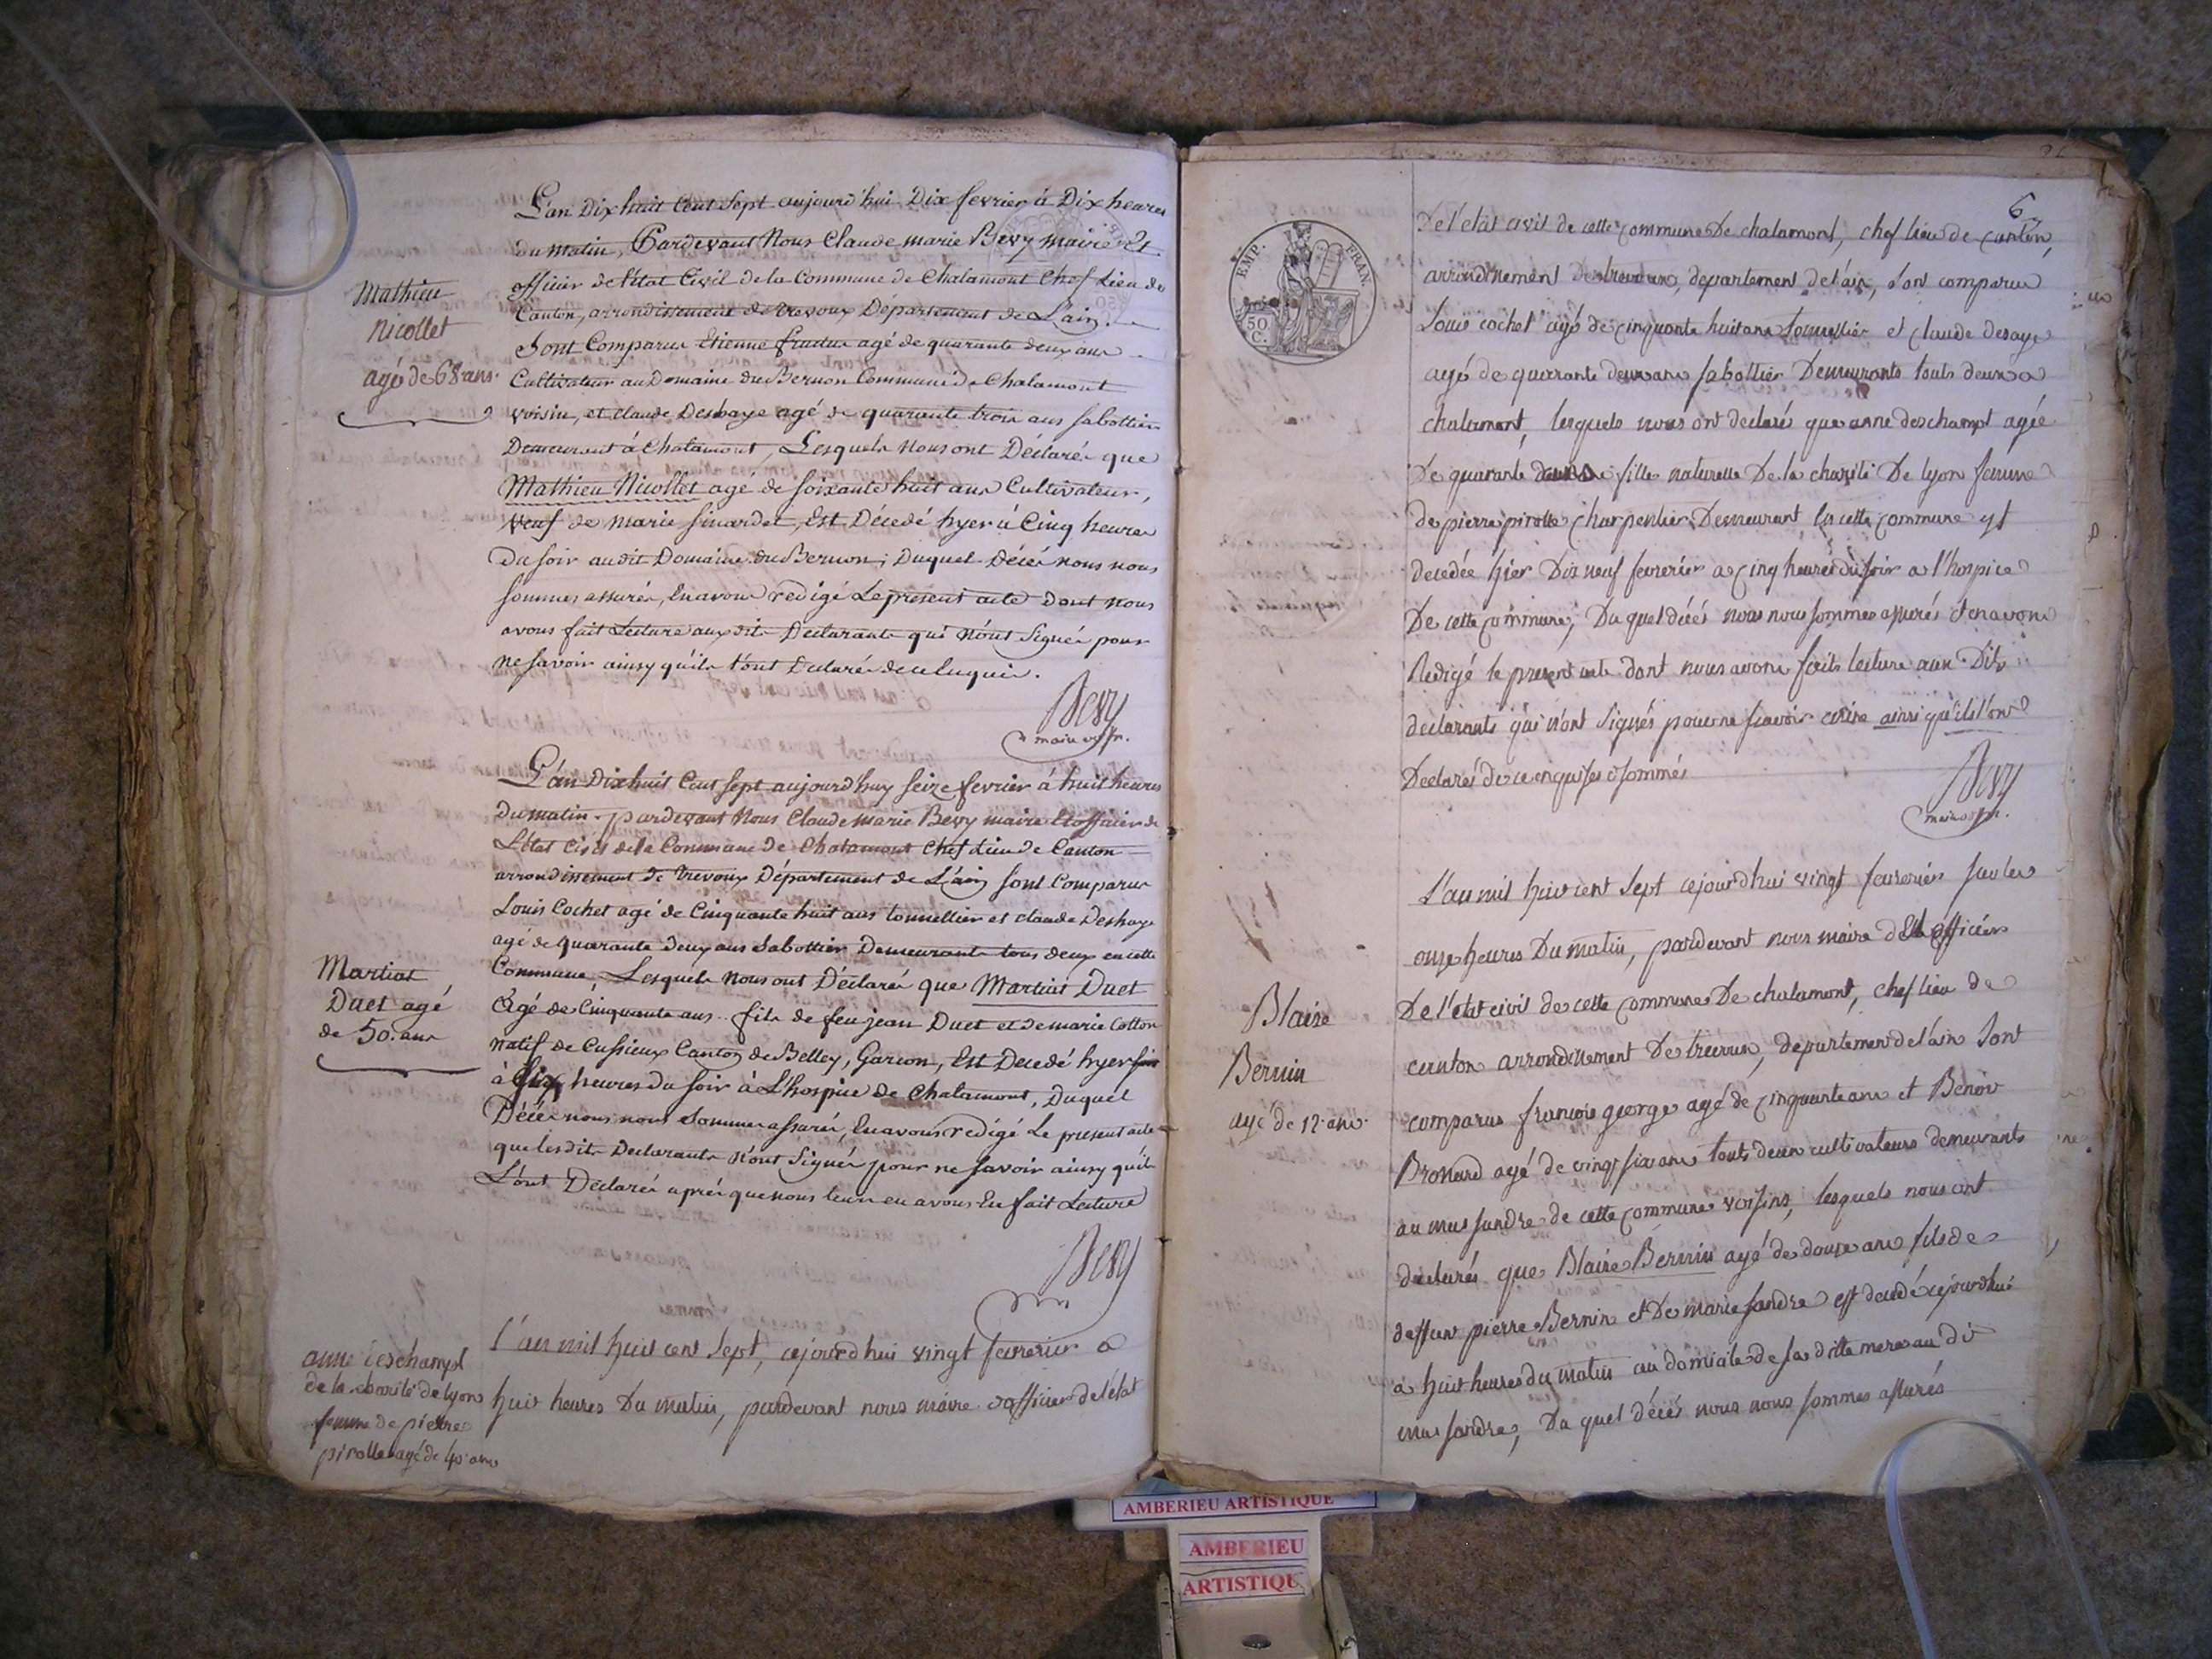 L'an Dix huit Cent Sept aujourd'hui Dix fevrier à Dix heures
du matin, Pardevant Nous Claude marie Bevy maire Et
officier de l'état Civil de la Commune de Chalamont Chef Lieu de
Canton, arrondissement de trevoux Département de L'ain.
Sont Comparus Etienne agé de quarante deux ans
Cultivateur au Domaine du Bernon Commune de Chalamont
voisin, et claude Deshaye agé de quarante trois ans sabottier
Demeurant à Chalamont, Lesquels Nous ont Déclarés que
Mathieu Nicollet agé de soixante huit ans Cultivateur,
veuf de marie sinardet, Est Décedé hyer à Cinq heures
Du soir au dit Domaine du Bernon; Duquel Décés nous nous
sommes assurés, En avons redigé Le present acte Dont nous
avons fait Lecture aux dits Declarants qui n'ont signés pour
ne savoir ainsy qu'ils l'ont Declarés de ce Enquis.
Bevy
maire
Mathieu
Nicollet
agé de 68 ans.
L'an Dix huit Cent sept aujourd'huy seize fevrier à huit heures
du matin pardevant Nous Claude marie Bevy maire Et officier de
L'état Civil de la Commune de Chalamont Chef Lieu de Canton
arrondissement de trevoux Département de L'ain sont Comparus
Louis Cochet agé de Cinquante huit ans tonnellier et claude Deshaye
agé de quarante deux ans sabottier Demeurants tous deux en cette
Commune, Lesquels Nous ont Déclarés que Martial Duet
Agé de Cinquante ans fils de feu jean Duet et de marie Cotton
natif de Cussieux Canton de Belley, Garcon, Est Decedé hyer soir
à six heures du soir à L'hospice de Chalamont, Duquel
Décés nous nous sommes assurés, En avons redigé Le present acte
que lesdits Declarants n'ont signés pour ne savoir ainsy qu'ils
L'ont Déclarés aprés que nous leur en avons Eu fait Lecture
Bevy
Martial
Duet agé
de 50. ans
L'an mil huit cent sept, cejourd'hui vingt fevrerier a
huit heures Du matin, pardevant nous maire officier de l'état
anne deschampt
de la charité de lyon
femme de pierre
pirolle agé de 40 ans
6
EMP. FRAN.
50
C.
De l'etat civil de cette commune De chalamont, chef lieu de canton,
arrondissement de trevoux, departement de l'ain, sont comparus
Louis cochet agé de cinquante huit ans tonnellier et claude desaye
agé de quarante deux ans sabottier Demeurants touts deux a
chalamont, lesquels nous ont declarés que anne deschampt agée
De quarante fille naturelle De la charité De lyon femme
de pierre pirolle charpentier Demeurant En cette commune est
decedée hier Dix neuf fevrerier a cinq heures du soir a l'hospice
De cette commune; Du quel décés nous nous sommes assurés et en avons
Redigé le present acte dont nous avons faits lecture aux Dits
declarants qui n'ont signés pour ne scavoir ecrire ainsi qu'ils l'ont
Declarés de ce enquises et sommés
Bevy
maire
L'an mil huit cent sept cejourd'hui vingt fevrerier sur les
onze heures Du matin, pardevant nous maire et officier
De l'etat civil de cette commune De chalamont, chef lieu de
canton arrondissement De trevoux, departement de l'ain sont
comparus francois george agé de cinquante ans et Benoit
Bronard agé de vingt six ans touts deux cultivateurs demeurants
au mas sandre de cette commune voisins, lesquels nous ont
déclarés que Blaise Bernin agé de douze ans fils de
deffunt pierre Bernin et De marie sandre est decedé cejourd'hui
a huit heures du matin au domicile de sa ditte mere au di
mas sandre, Du quel décés nous nous sommes assurés
Blaise
Bernin
agé de 12 ans.
AMBERIEU ARTISTIQUE
AMBERIEU
ARTISTIQU